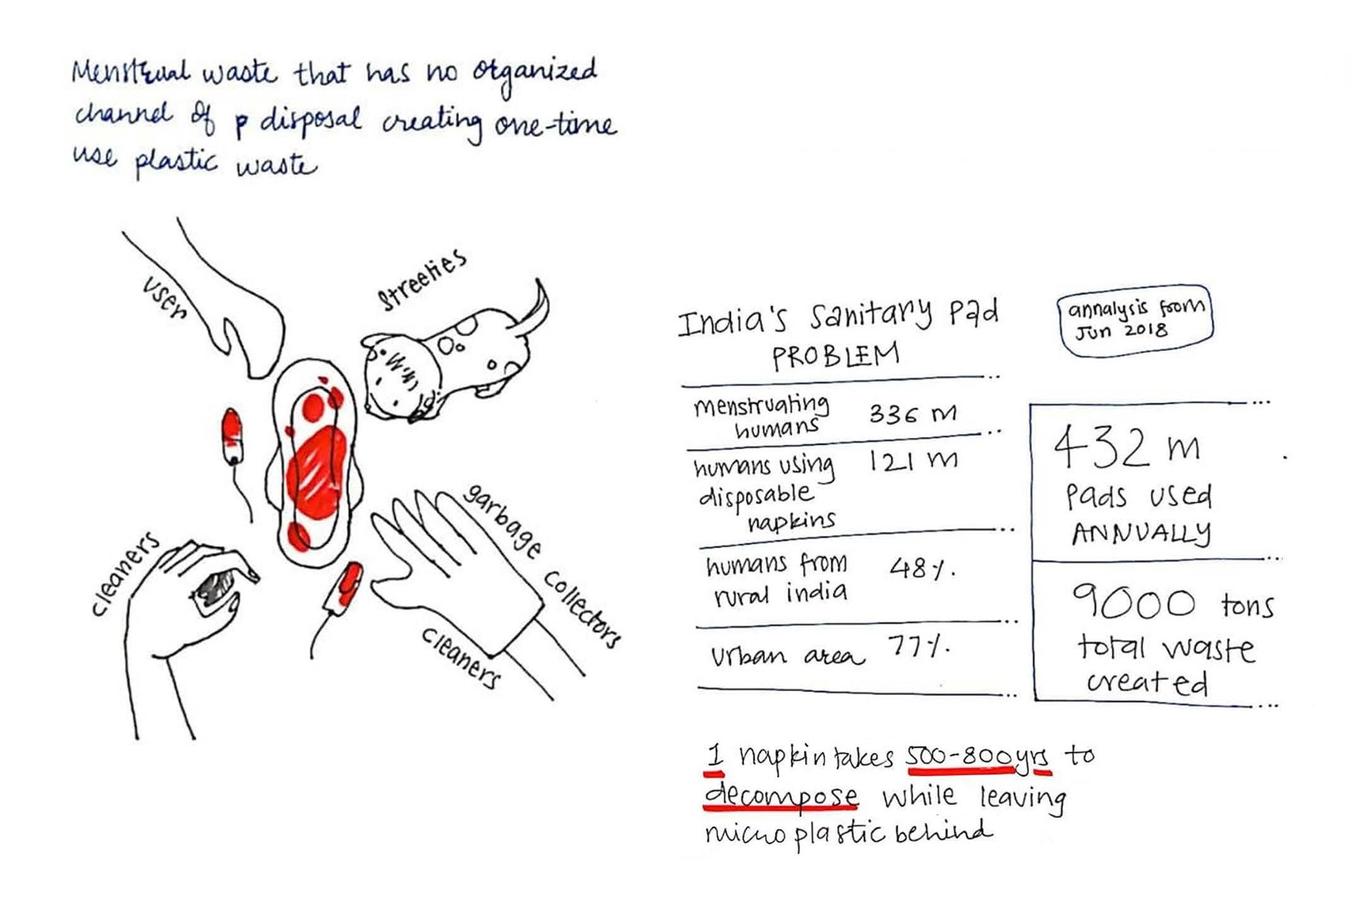 Menstrual waste that has no organized
channel of p disposal creating one-time
use plastic waste
user
Streeties
cleaners
garbage collectors
cleaners
India's Sanitary Pad
PROBLEM
annalysis from
Jun 2018
menstruating
humans
336 M
humans using
disposable
napkins
121 M
humans from
rural india
48%.
urban area
77%.
432 m
Pads used
ANNUALLY
9000 tons
total waste
created
1 napkin takes 500-800yrs to
decompose while leaving
micro plastic behind